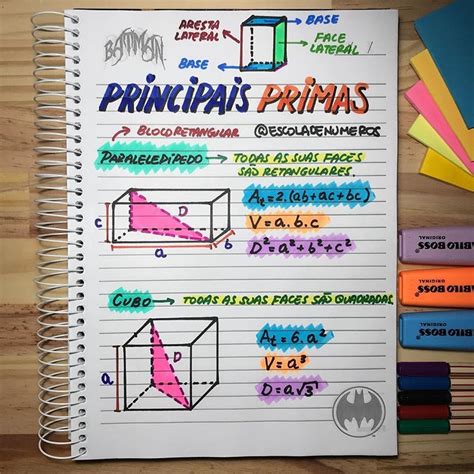 BATMAN
ARESTA LATERAL
BASE
FACE LATERAL
BASE
PRINCIPAIS PRIMAS
BLOCO RETANGULAR @ESCOLADENUMEROS
PARALELEDIPEDO → TODAS AS SUAS FACES
SÃO RETANGULARES.
At = 2.(ab+ac+bc)
V = a.b.c
D² = a² + b² + c²
c D b a
CUBO → TODAS AS SUAS FACES SÃO QUADRADAS
At = 6.a²
V = a³
D = a√3
a D
STABILO BOSS
ORIGINAL
STABILO BOSS
ORIGINAL
STABILO BOSS
ORIGINAL